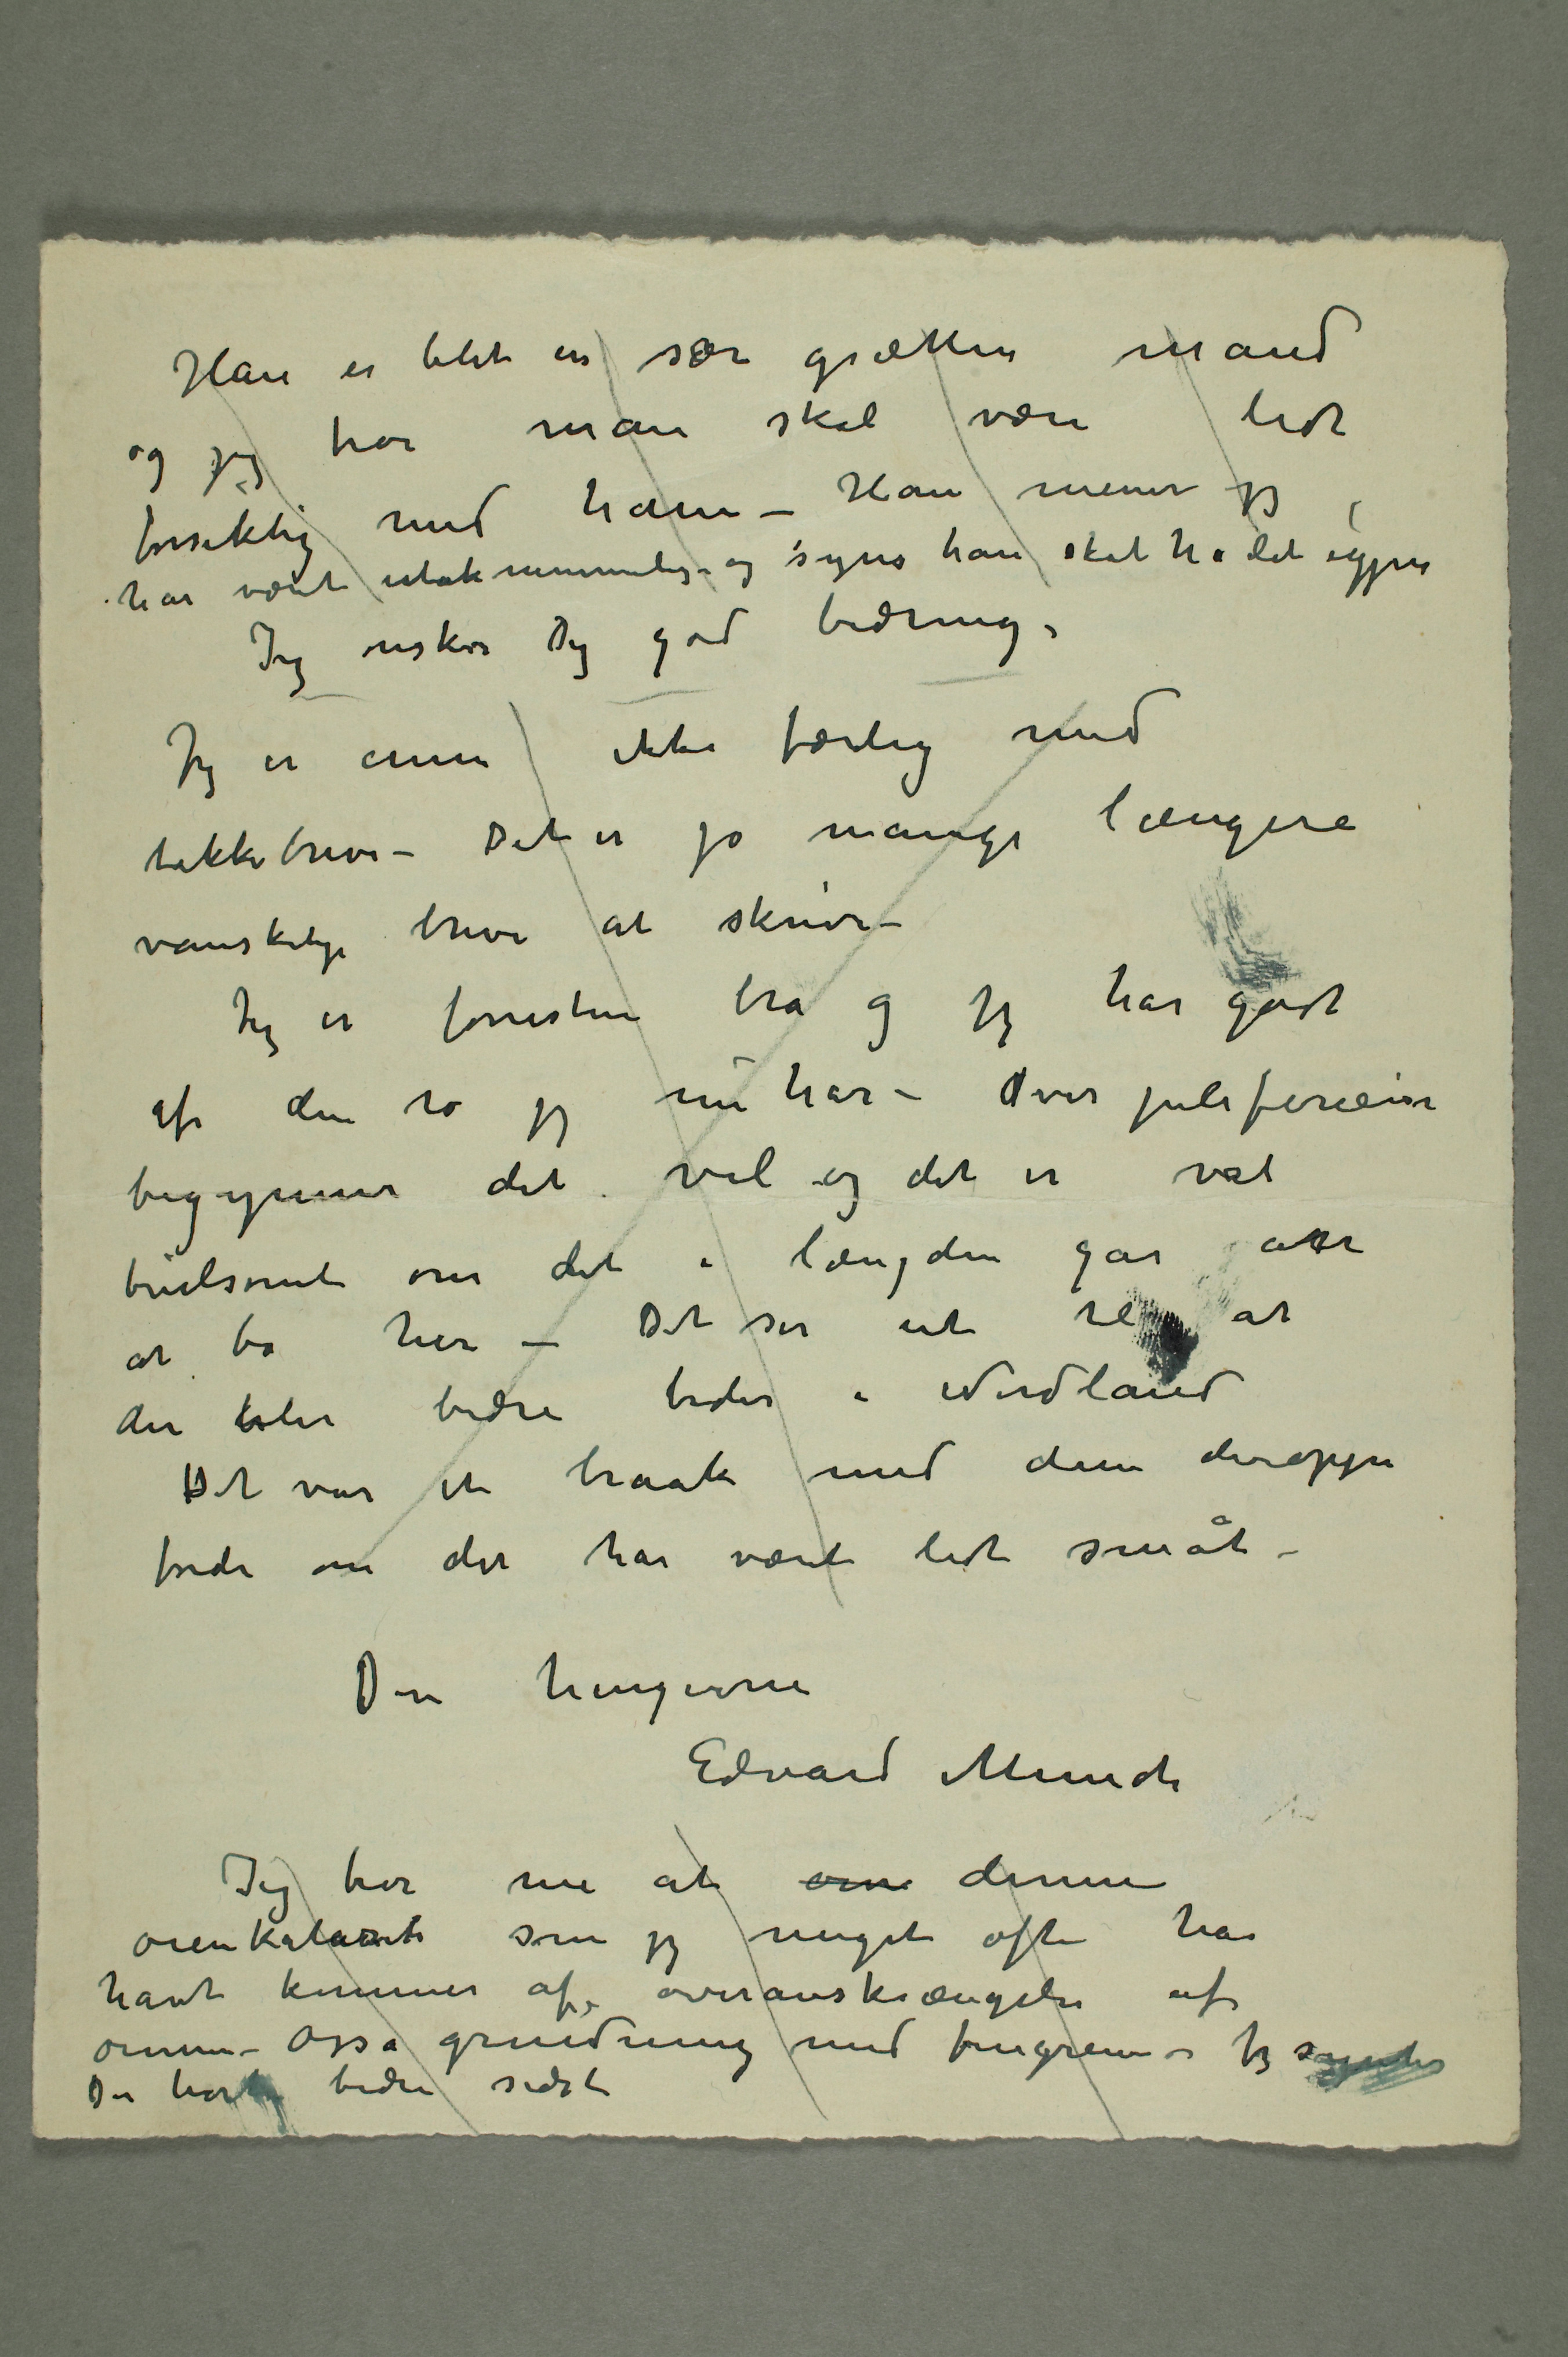 Han er blet en sær grætten mand
og jeg tror man skal være lidt
forsiktig med ham – Han mener jeg
har været utaknemmelig – og synes han skal ha det igjen
Jeg ønsker Dig god bedring.
Jeg er ennu ikke færdig med
takkebreve – Det er jo mange længere
vanskelige breve at skrive –
Jeg er forresten bra og jeg har godt
af den ro jeg nu har – Over juleferieen
begynner det vel og det er vel
tvilsomt om det i længden går an
at bo her – Det ser ut til at
der blir bedre tider i Nordland
Det var et braak med dem deroppe
fordi om det har været lidt småt –
Din hengivne
Edvard Munch
Jeg tror nu at om denne
øienkatarrh som jeg meget ofte har
havt kommer af overanstrængelse af
øinene – Også gnidning med fingrene – Jeg syntes
Du har bedre sidst